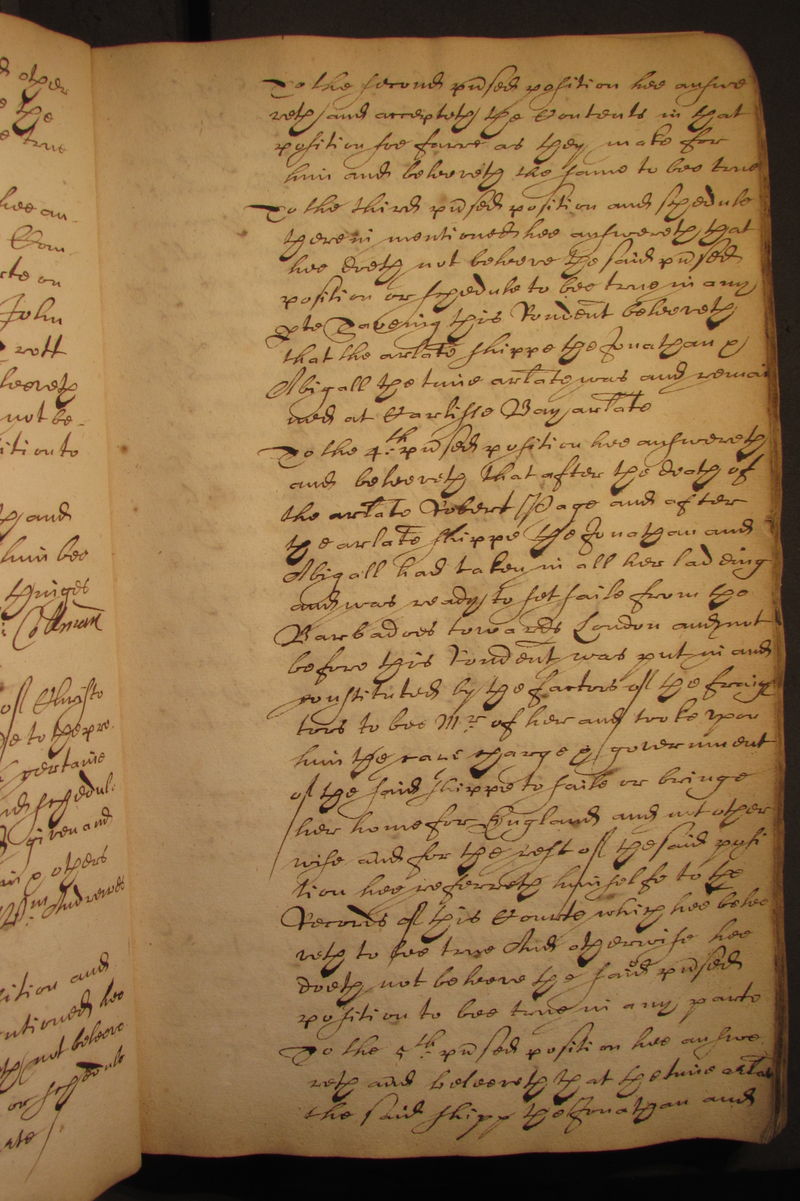 d other
e the
e true
hee an-
Com-
rte on
John
rott
leeveth
not be-
ition to
th and
him bee
thinges
: Collman
of Christo
e to the pre-
pertaine
schedul-
given and
in p others
W:m Andrewes
ition and
entioned hee
th not beleeve
or schedule
rte
To the second p̃nsed position hee answe
reth and accepteth the Contents in that
position soe farre as they make for
him and beleeveth the same to bee true
To the third p̃nsed position and schedule
therein mentioned hee answereth that
hee doeth not beleeve the said p̃nsed
position or schedule to bee true in any
pte Saveing this Rondent beleeveth
that the arlate shippe the Jonathan &
Abigall the time arlate was and remai
ned at Carlisse Bay arlate
To the 4:th p̃nsed position hee answereth
and beleeveth That after the death of
the arlate Robert Page and after
the arlate shippe the Jonathan and
Abigall had taken in all her ladeing
and was ready to set saile from the
Barbadoes towards London and not
before this Rondent was put in and
constituted by the factors of the fraigh
tors to bee Mr of her and tooke upon
him the care charge & government
of the said shippe to saile or bringe
her home for England and not other
wise and for the rest of the said posi
tion hee referreth himselfe to the
Records of this Courte which hee belee
veth to bee true And otherwise hee
doeth not beleeve the said p̃nsed
position to bee true in any parte
To the 5:th p̃nsed position hee answe
reth and beleeveth that the time arlate
the said shipp the Jonathan and